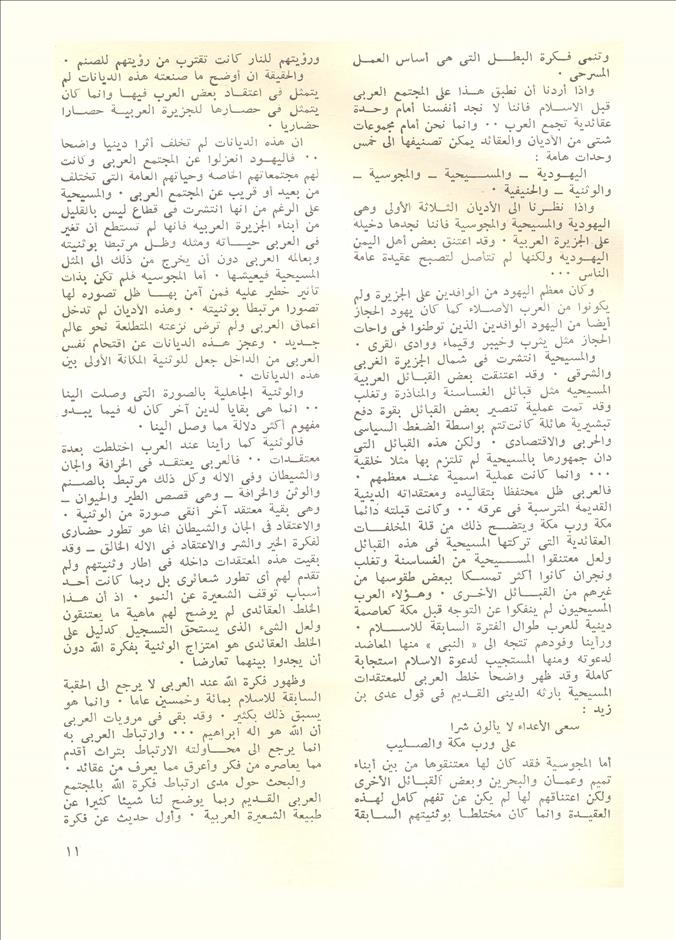 وتنمى فكرة البطل التى هى أساس العمل
المسرحى ٠
واذا أردنا أن نطبق هذا على المجتمع العربى
قبل الاسلام فاننا لا نجد أنفسنا أمام وحدة
عقائدية تجمع العرب ٠٠ وانما نحن أمام مجموعات
شتى من الأديان والعقائد يمكن تصنيفها الى خمس
وحدات هامة :
اليهودية ــ والمسيحية ــ والمجوسية ــ
والوثنية ــ والحنيفية ٠
واذا نظرنا الى الأديان الثلاثة الأولى وهى
اليهودية والمسيحية والمجوسية فاننا نجدها دخيله
على الجزيرة العربية ٠ وقد اعتنق بعض أهل اليمن
اليهودية ولكنها لم تتأصل لتصبح عقيدة عامة
الناس ٠٠٠
وكان معظم اليهود من الوافدين على الجزيرة ولم
يكونوا من العرب الأصلاء كما كان يهود الحجاز
أيضا من اليهود الوافدين الذين توطنوا فى واحات
الحجاز مثل يثرب وخيبر وقيماء ووادى القرى ٠
والمسيحية انتشرت فى شمال الجزيرة الغربى
والشرقى ٠ وقد اعتنقت بعض القبائل العربية
المسيحيه مثل قبائل الغساسنة والمناذرة وتغلب
وقد تمت عملية تنصير بعض القبائل بقوة دفع
تبشيرية هائلة كانت تتم بواسطة الضغط السياسى
والحربى والاقتصادى ٠ ولكن هذه القبائل التى
دان جمهورها بالمسيحية لم تلتزم بها مثلا خلقية
٠٠٠ وانما كانت عملية اسمية عند معظمهم ٠
فالعربى ظل محتفظا بتقاليده ومعتقداته الدينية
القديمة المترسبة فى عرقه ٠٠ وكانت قبلته دائما
مكة ورب مكة ويتضح ذلك من قلة المخلفات
العقائدية التى تركتها المسيحية فى هذه القبائل
ولعل معتنقوا المسيحية من الغساسنة وتغلب
ونجران كانوا أكثر تمسكا ببعض طقوسها من
غيرهم من القبائل الأخرى ٠ وهؤلاء العرب
المسيحيون لم ينفكوا عن التوجه قبل مكة كعاصمة
دينية للعرب طوال الفترة السابقة للاسلام ٠
ورأينا وفودهم تتجه الى « النبى » منها المعاضد
لدعوته ومنها المستجيب لدعوة الاسلام استجابة
كاملة وقد ظهر واضحا خلط العربى للمعتقدات
المسيحية بارثه الدينى القديم فى قول عدى بن
زيد :
سعى الأعداء لا يألون شرا
على ورب مكة والصليب
أما المجوسية فقد كان لها معتنقوها من بين أبناء
تميم وعمان والبحرين وبعض القبائل الأخرى
ولكن اعتناقهم لها لم يكن عن تفهم كامل لهذه
العقيدة وانما كان مختلطا بوثنيتهم السابقة
ورؤيتهم للنار كانت تقترب من رؤيتهم للصنم ٠
والحقيقة ان أوضح ما صنعته هذه الديانات لم
يتمثل فى اعتقاد بعض العرب فيها وانما كان
يتمثل فى حصارها للجزيرة العربية حصارا
حضاريا ٠
ان هذه الديانات لم تخلف أثرا دينيا واضحا
٠٠ فاليهود انعزلوا عن المجتمع العربى وكانت
لهم مجتمعاتهم الخاصة وحياتهم العامة التى تختلف
من بعيد أو قريب عن المجتمع العربى ٠ والمسيحية
على الرغم من انها انتشرت فى قطاع ليس بالقليل
من أبناء الجزيرة العربيه فأنها لم تستطع أن تغير
فى العربى حياته ومثله وظل مرتبطا بوثنيته
وبعالمه العربى دون أن يخرج من ذلك الى المثل
المسيحية فيعيشها ٠ أما المجوسيه فلم تكن بذات
تأثير خطير عليه فمن آمن بها ظل تصوره لها
تصورا مرتبطا بوثنيته ٠ وهذه الأديان لم تدخل
أعماق العربى ولم ترض نزعته المتطلعة نحو عالم
جديد ٠ وعجز هذه الديانات عن اقتحام نفس
العربى من الداخل جعل للوثنية المكانة الأولى بين
هذه الديانات ٠
والوثنية الجاهلية بالصورة التى وصلت الينا
٠٠ انما هى بقايا لدين آخر كان له فيما يبدو
مفهوم أكثر دلالة مما وصل الينا ٠
فالوثنية كما رأينا عند العرب اختلطت بعدة
معتقدات ٠٠ فالعربى يعتقد فى الخرافة والجان
والشيطان وفى الاله وكل ذلك مرتبط بالصنم
والوثن والخرافة ــ وهى قصص الطير والحيوان ــ
وهى بقية معتقد آخر أنقى صورة من الوثنية ٠
والاعتقاد فى الجان والشيطان انما هو تطور حضارى
لفكرة الخير والشر والاعتقاد فى الاله الخالق ــ وقد
بقيت هذه المعتقدات داخله فى اطار وثنيتهم ولم
تقدم لهم أى تطور شعائرى بل ربما كانت أحد
أسباب توقف الشعيرة عن النمو ٠ اذ أن هذا
الخلط العقائدى لم يوضح لهم ماهية ما يعتنقون
ولعل الشىء الذى يستحق التسجيل كدليل على
الخلط العقائدى هو امتزاج الوثنية بفكرة الله دون
أن يجدوا بينهما تعارضا ٠
وظهور فكرة الله عند العربى لا يرجع الى الحقبة
السابقة للاسلام بمائة وخمسين عاما ٠ وانما هو
يسبق ذلك بكثير ٠ وقد بقى فى مرويات العربى
أن الله هو اله أبراهيم ٠٠٠ وارتباط العربى به
انما يرجع الى محاولته الارتباط بتراث أقدم
مما يعاصره من فكر وأعرق مما يعرف من عقائد ٠
والبحث حول مدى ارتباط فكرة الله بالمجتمع
العربى القديم ربما يوضح لنا شيئا كثيرا عن
طبيعة الشعيرة العربية ٠ وأول حديث عن فكرة
١١